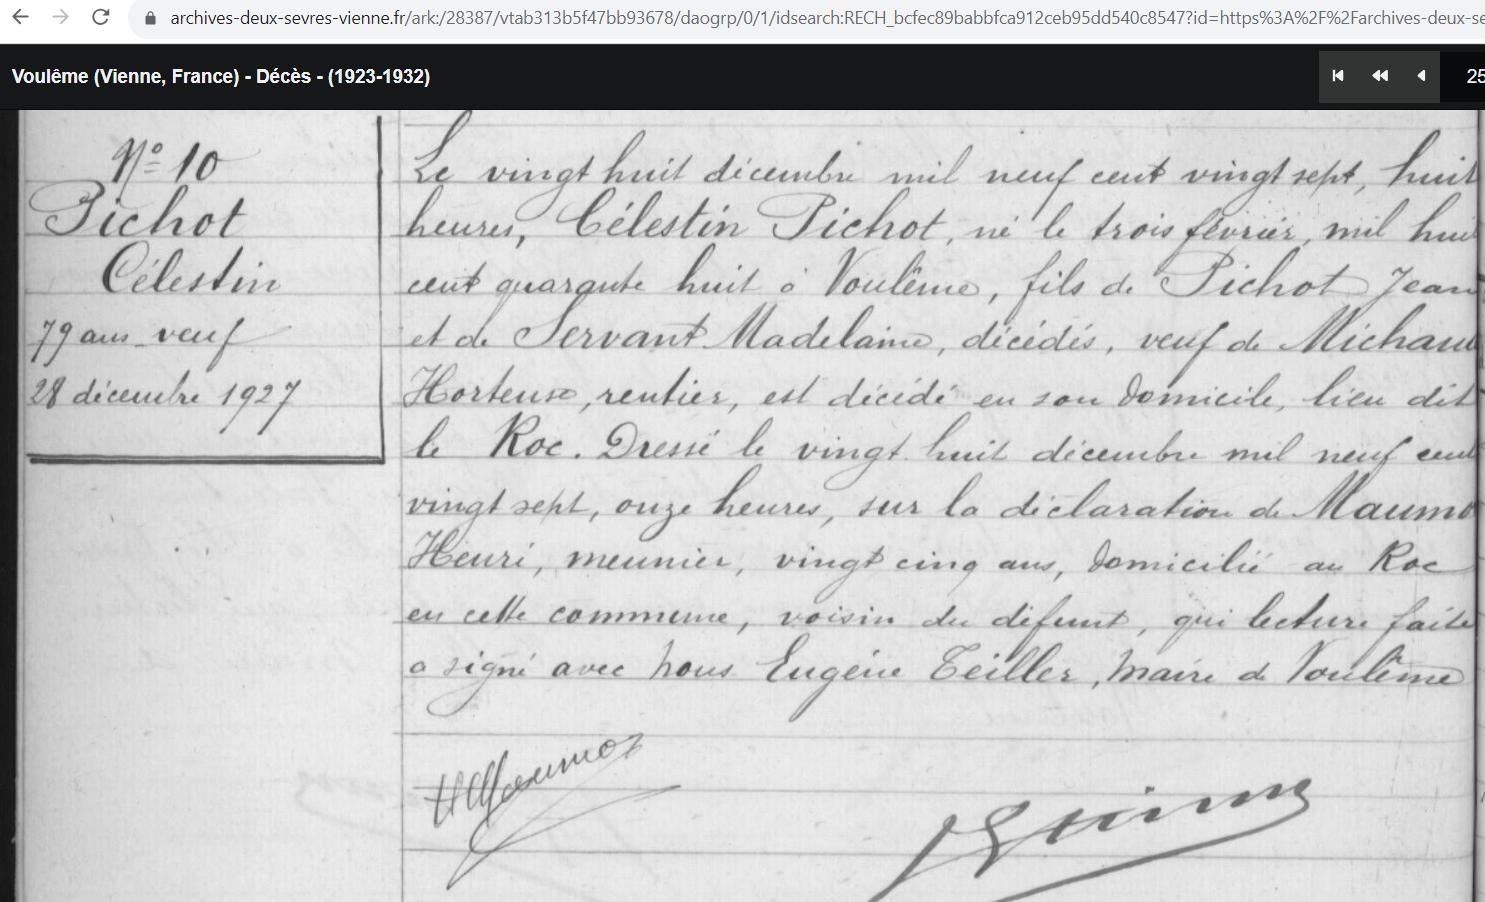 archives-deux-sevres-vienne.fr/ark:/28387/vtab313b5f47bb93678/daogrp/0/1/idsearch:RECH_bcfec89babbfca912ceb95dd540c8547?id=https%3A%2F%2Farchives-deux-se
Voulême (Vienne, France) - Décès - (1923-1932)
25
Nº 10
Pichot
Célestin
79 ans veuf
28 décembre 1927
Le vingt huit décembre mil neuf cent vingt sept, huit
heures, Célestin Pichot, né le trois février, mil huit
cent quarante huit à Voulême, fils de Pichot Jean
et de Servant Madelaine, décédés, veuf de Michaud
Hortense, rentier, est décédé en son domicile, lieu dit
le Roc. Dressé le vingt huit décembre mil neuf cent
vingt sept, onze heures, sur la déclaration de Maumo
Henri, meunier, vingt cinq ans, domicilié au Roc
en cette commune, voisin du défunt, qui lecture faite
a signé avec nous Eugène Teiller, maire de Voulême
HMaumot